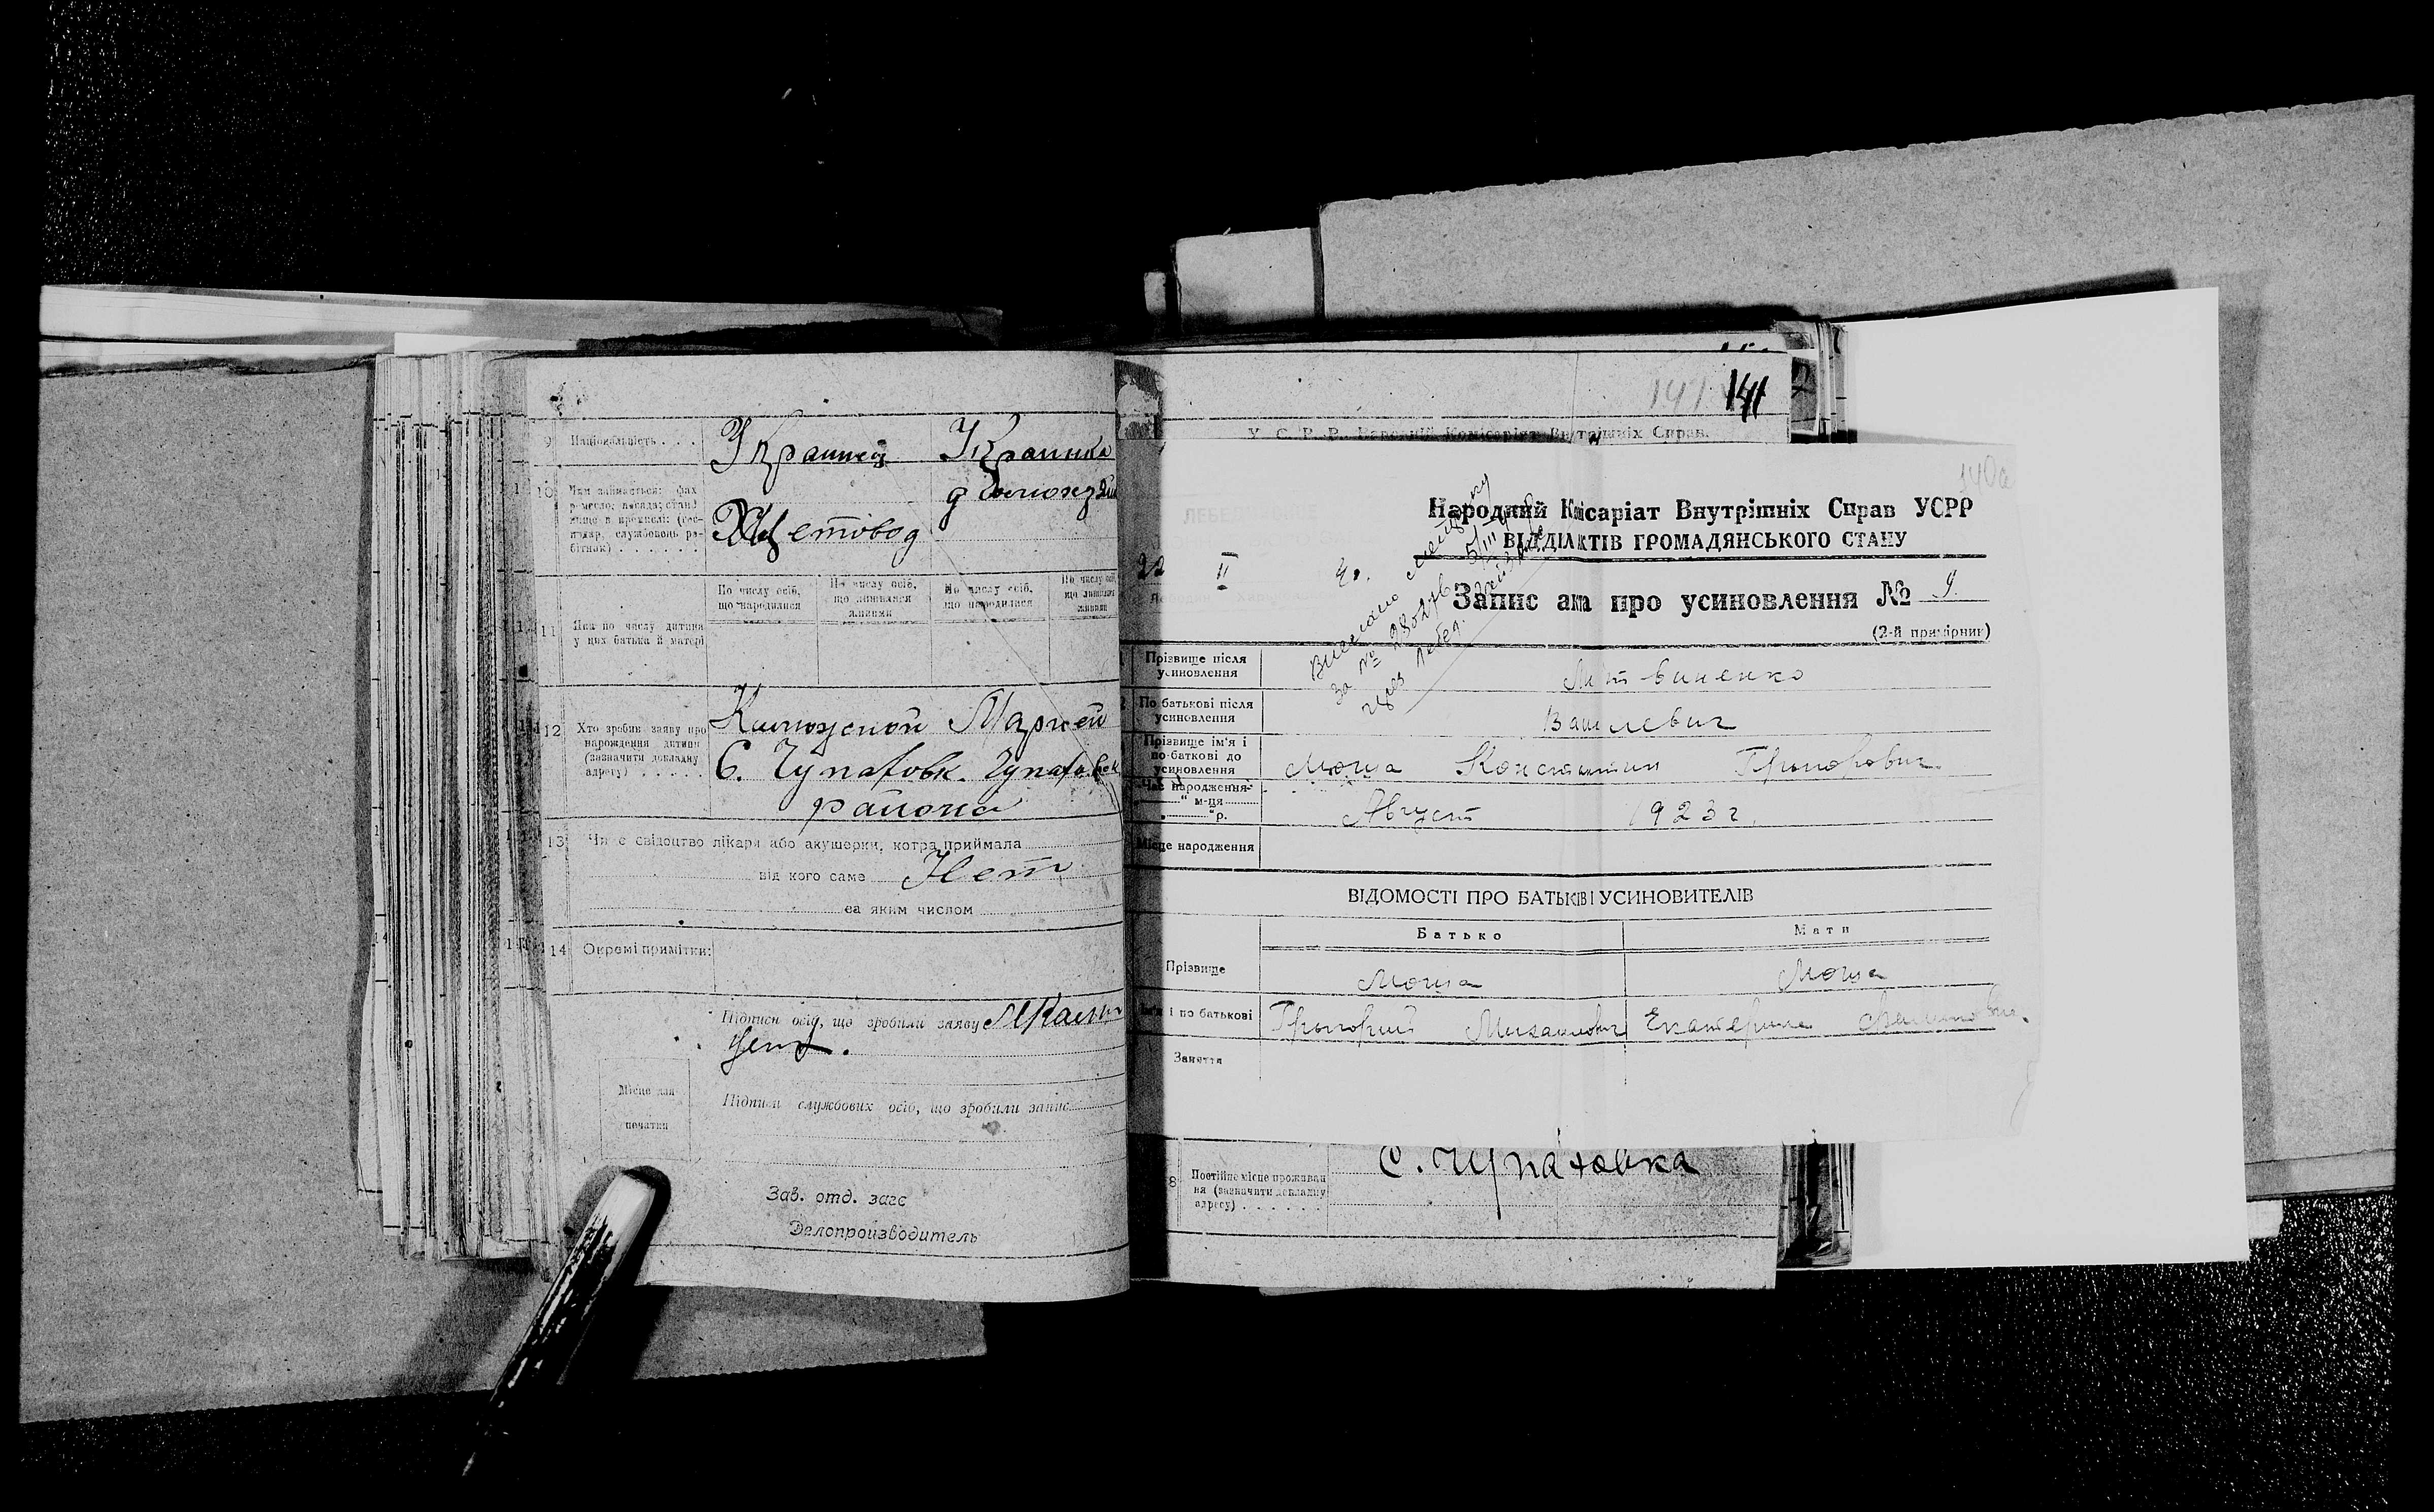 9 Національність . . .
Украинец
Украинка
10 Чим займається: фах
ремесло; посада; стан
Щетовод
11 Яка по числу дитина
у цих батька й матері
По числу осіб,
що народилися
По числу осіб,
що лишилися
живими
По числу осіб,
що народилися
По числу осіб,
що лишилися
живими
12 Хто зробив заяву про
народження дитини
(зазначити докладну
адресу) . . . . .
С. Чупаховк.
района
13 Чи є свідоцтво лікаря або акушерки, котра приймала
від кого саме Нет
за яким числом
14 Окремі примітки:
Підписи осіб, що зробили заяву
Місце для
печатки
Підписи службових осіб, що зробили запис
Зав. отд. загс
Делопроизводитель
141 141
У. С. Р. Р. Народній Комісаріят Внутрішніх Справ.
140а
Народний Комісаріат Внутрішніх Справ УСРР
ВІДДІЛ АКТІВ ГРОМАДЯНСЬКОГО СТАНУ
22 II 40.
Запис акта про усиновлення № 9.
(2-й примірник)
за №
через Лебед.
Прізвище після
усиновлення
Литвиненко
По батькові після
усиновлення
Василевич
Прізвище ім'я і
по-баткові до
усиновлення
Моща Константин Григорович
Час народження
" м-ця
" р.
Август 1923 г.
Місце народження
ВІДОМОСТІ ПРО БАТЬКІВ І УСИНОВИТЕЛІВ
Батько
Мати
Прізвище
Моща
Моща
Ім'я і по батькові
Григорий Михаилович
Екатерина
Заняття
8 Постійне місце проживан
ня (зазначити докладну
адресу) . . . . . .
С. Чупаховка